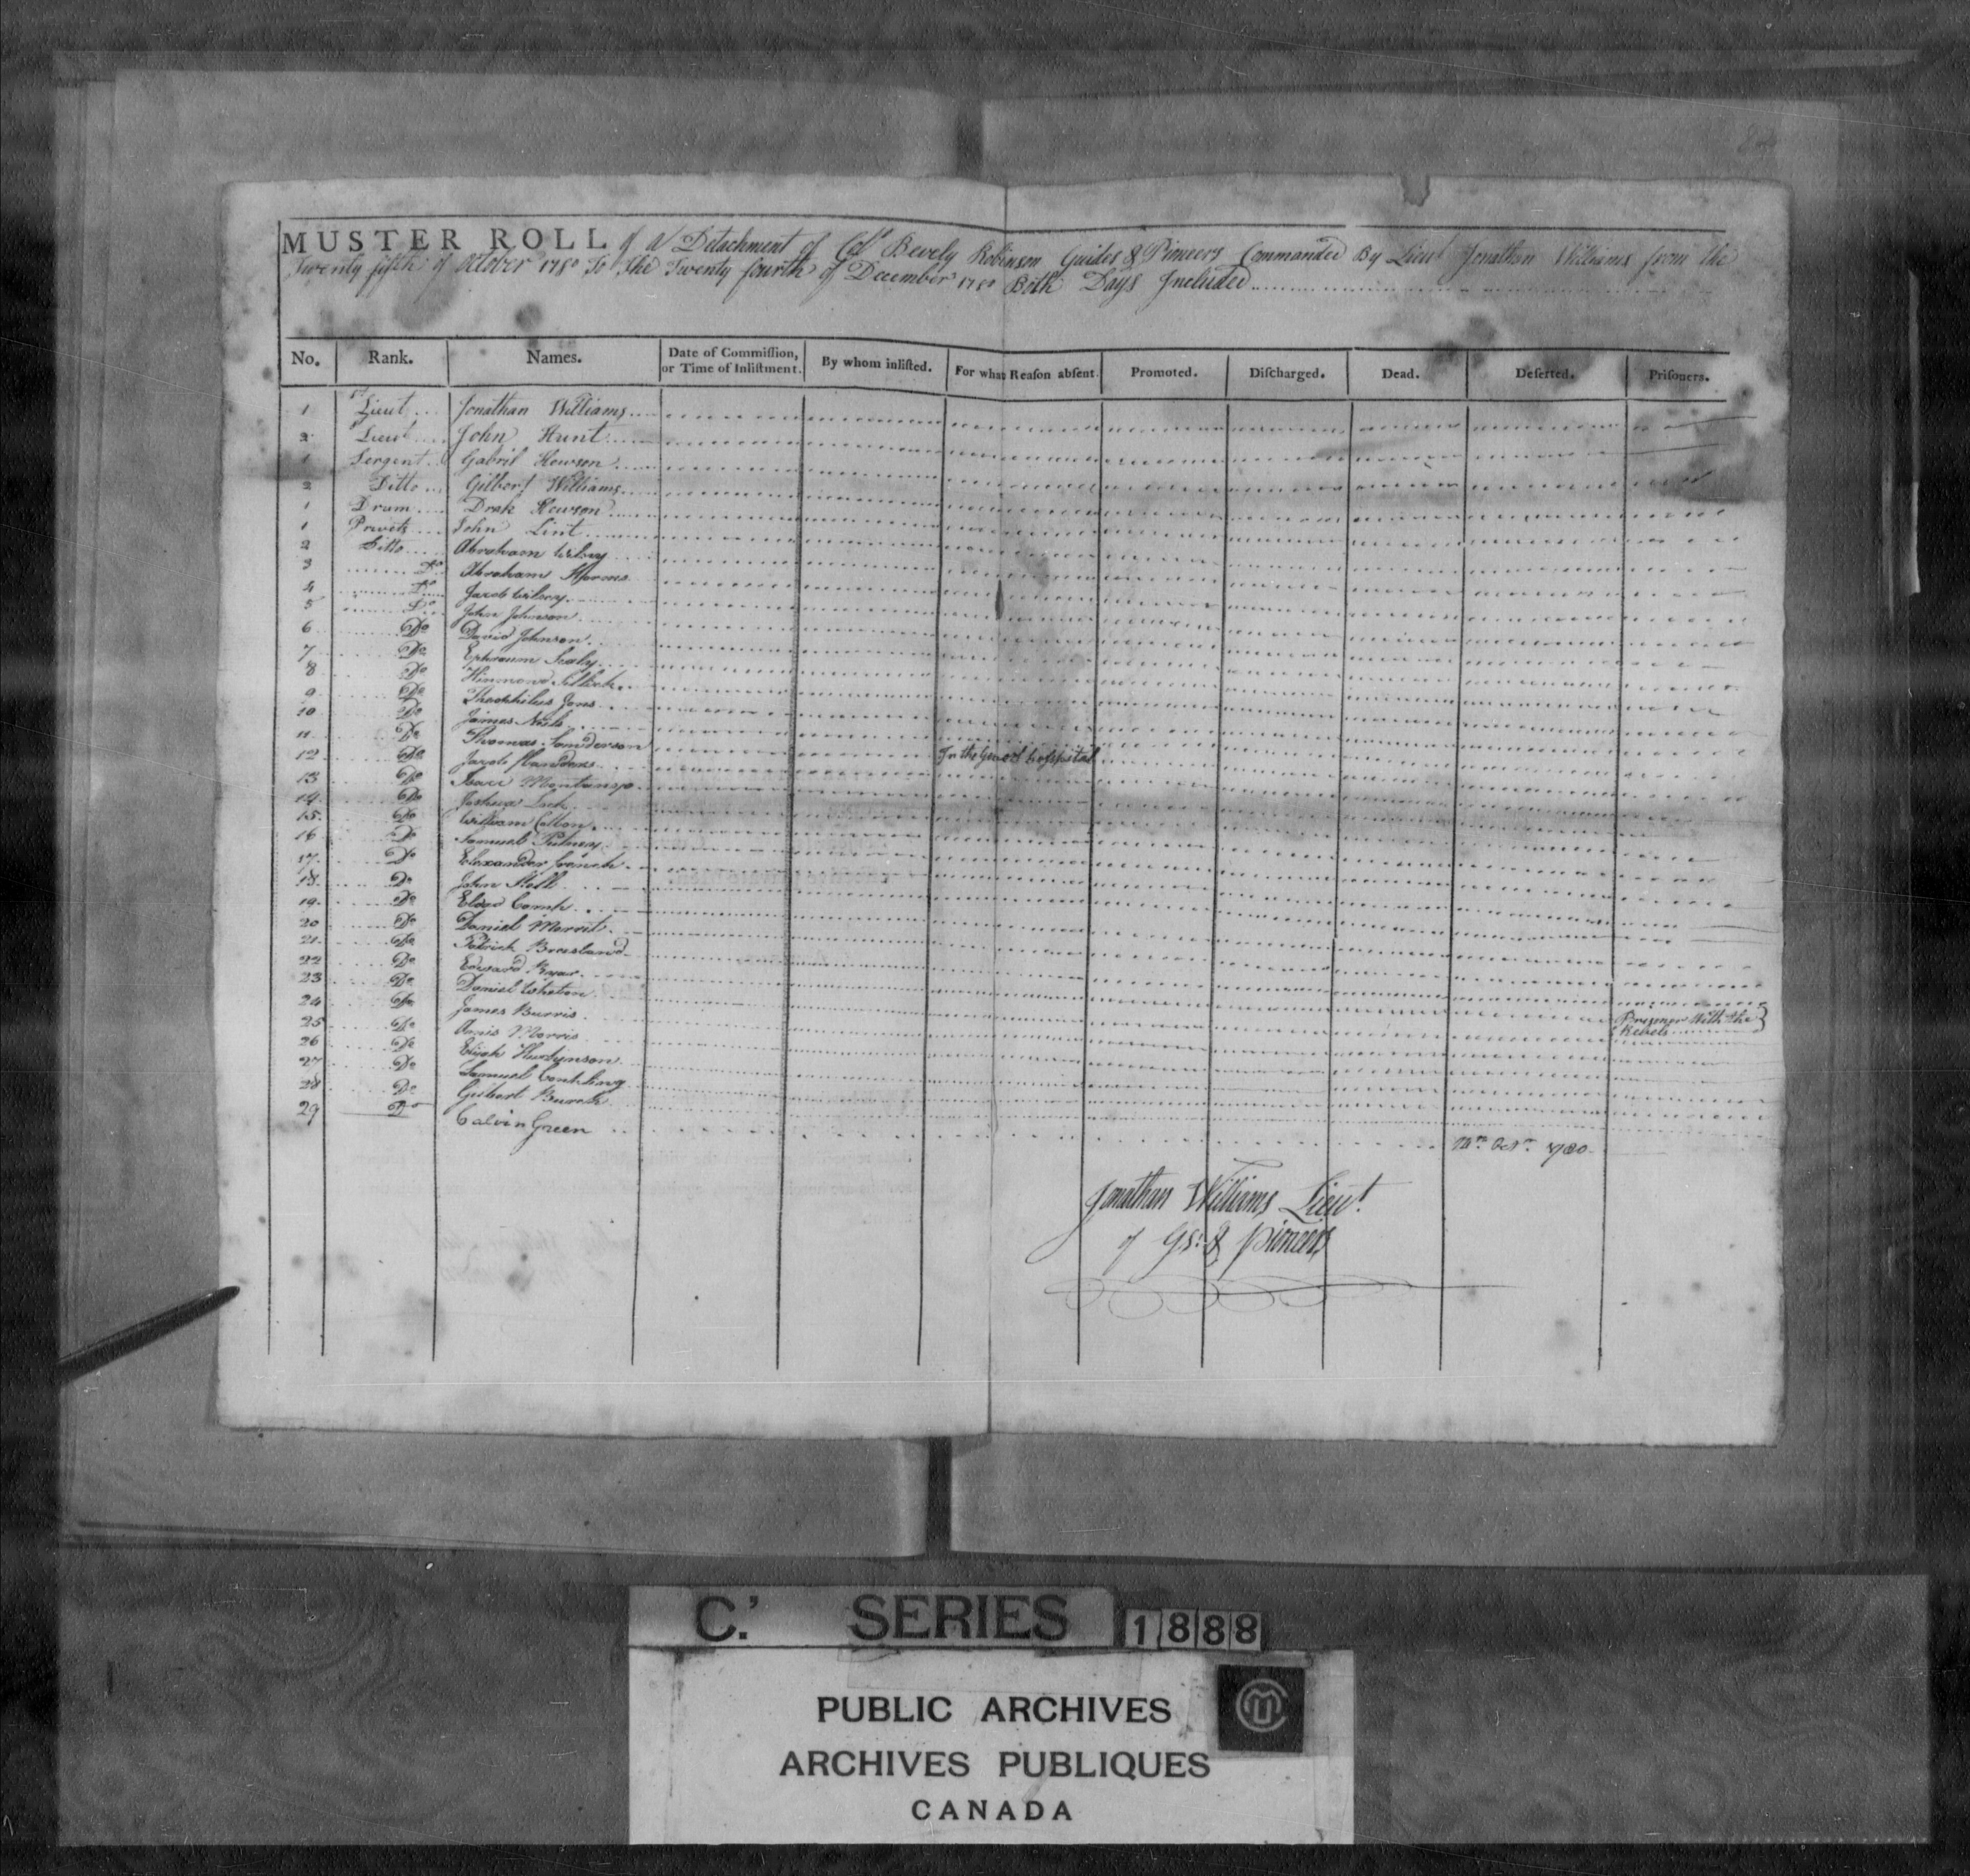 MUSTER ROLL of a Detachment of Coll Bevely Robinson Guides & Pioneers Commanded By Lieut Jonathan Williams from the
Twenty fifth of October 1780 To The Twenty fourth of December 1780 Both Days Included
No. Rank. Names. Date of Commission, or Time of Inlistment. By whom inlisted. For what Reason absent. Promoted. Discharged. Dead. Deserted. Prisoners.
1 Lieut Jonathan Williams
2 Lieut John Hunt
1 Sergent Gabril Hewson
2 Ditto Gilbert Williams
1 Drum Drak Hewson
1 Privets John Lint
2 Ditto Abraham Wilsey
3 Do Abraham Storms
4 Do Jacob Wilsey
5 Do John Johnson
6 Do David Johnson
7 Do Ephraum Sealy
8 Do
9 Do Theophilus Jons
10 Do James
11 Do Thomas Saunderson
12 Do Jacob In the Genrel hospital
13 Do Isaac Montanye
14 Do Joshua
15 Do William Cotton
16 Do Samuel Putney
17 Do Elexander French
18 Do John Stell
19 Do
20 Do Daniel Morrit
21 Do Patrick Bresland
22 Do Edward Ryar
23 Do Daniel Wheten
24 Do James Burris Prisoner With the Rebels
25 Do Amis Morris
26 Do Elijah
27 Do Samuel Conkling
28 Do Gilbert Burch
29 Do Calvin Green Octr 1780
Jonathan Williams Lieut
of Gs & Pioneers
C.' SERIES 1888
PUBLIC ARCHIVES
ARCHIVES PUBLIQUES
CANADA